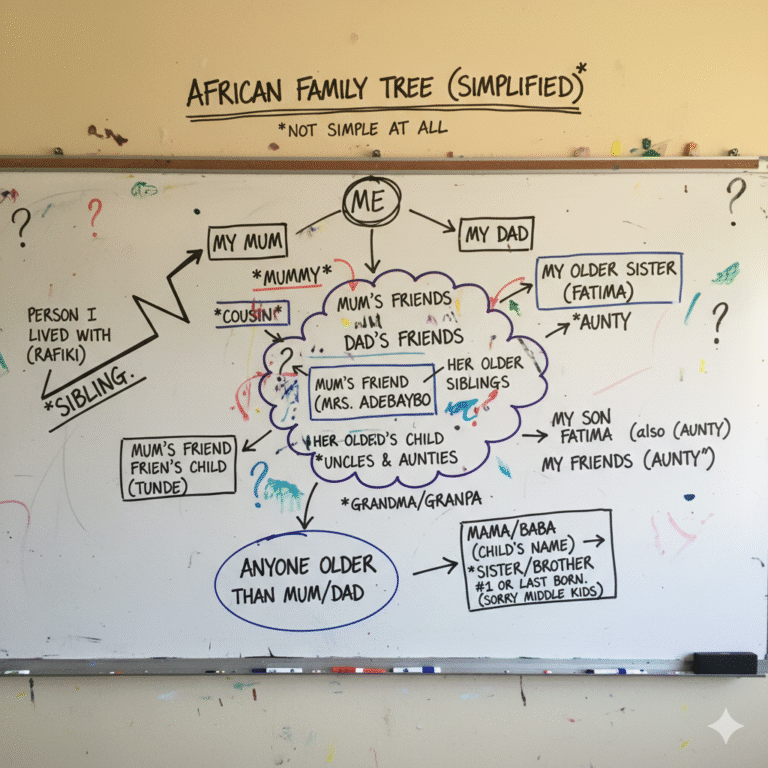 AFRICAN FAMILY TREE (SIMPLIFIED)*
*NOT SIMPLE AT ALL
?
?
?
ME
MY MUM
MY DAD
*MUMMY*
*COUSIN*
PERSON I
LIVED WITH
(RAFIKI)
*SIBLING.
MUM'S FRIENDS
DAD'S FRIENDS
?
MUM'S FRIEND
(MRS. ADEBAYBO
HER OLDER
SIBLINGS
HER OLDED'S CHILD
*UNCLES & AUNTIES
MY OLDER SISTER
(FATIMA)
*AUNTY
?
MY SON
FATIMA (also (AUNTY)
MY FRIENDS (AUNTY")
MUM'S FRIEND
FRIEN'S CHILD
(TUNDE)
?
*GRANDMA/GRANPA
ANYONE OLDER
THAN MUM/DAD
MAMA/BABA
(CHILD'S NAME)
*SISTER/BROTHER
#1 OR LAST BORN.
(SORRY MIDDLE KIDS)